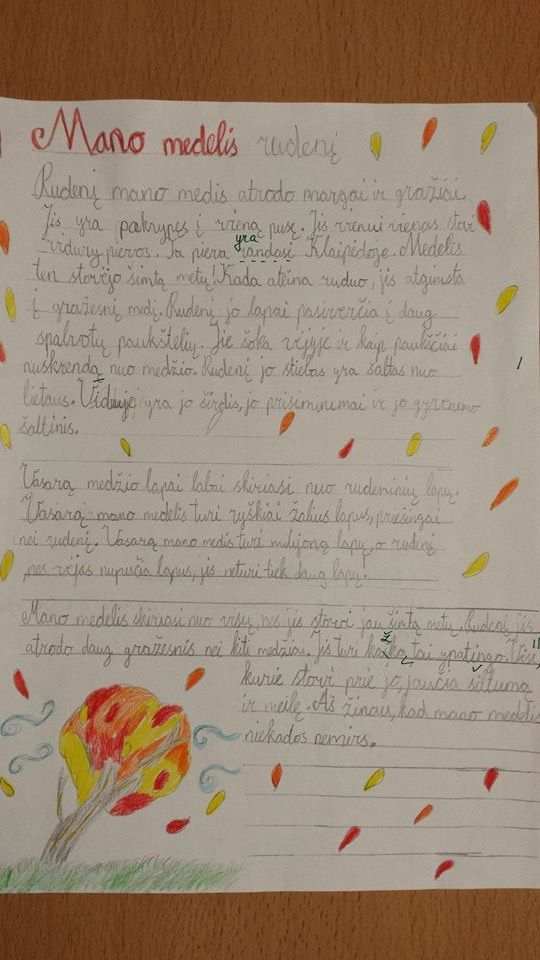 Mano medelis rudenį
Rudenį mano medis atrodo margai ir gražiai.
Jis yra pakrypęs į vieną pusę. Jis vienui vienas stovi
vidury pievos. Ta pieva randasi Klaipėdoje. Medelis
yra
ten stovėjo šimtą metų! Kada ateina ruduo, jis atgimsta
į gražesnį medį. Rudenį jo lapai pasiverčia į daug
spalvotų paukštelių. Jie šoka vėjyje ir kaip paukščiai
nuskrenda nuo medžio. Rudenį jo stiebas yra šaltas nuo
lietaus. Viduje yra jo širdis, jo prisiminimai ir jo gyvenimo
šaltinis.
Vasarą medžio lapai labai skiriasi nuo rudeninių lapų.
Vasarą mano medelis turi ryškiai žalius lapus, priešingai
nei rudenį. Vasarą mano medis turi milijoną lapų, o rudenį
, nes vėjas nupučia lapus, jis neturi tiek daug lapų.
Mano medelis skiriasi nuo visų, nes jis stovi jau šimtą metų. Rudenį jis
atrodo daug gražesnis nei kiti medžiai. Jis turi kaška tai ypatingo. Visi,
ž
kurie stovi prie jo, jaučia šilumą
ir meilę. Aš žinau, kad mano medelis
niekados nemirs.